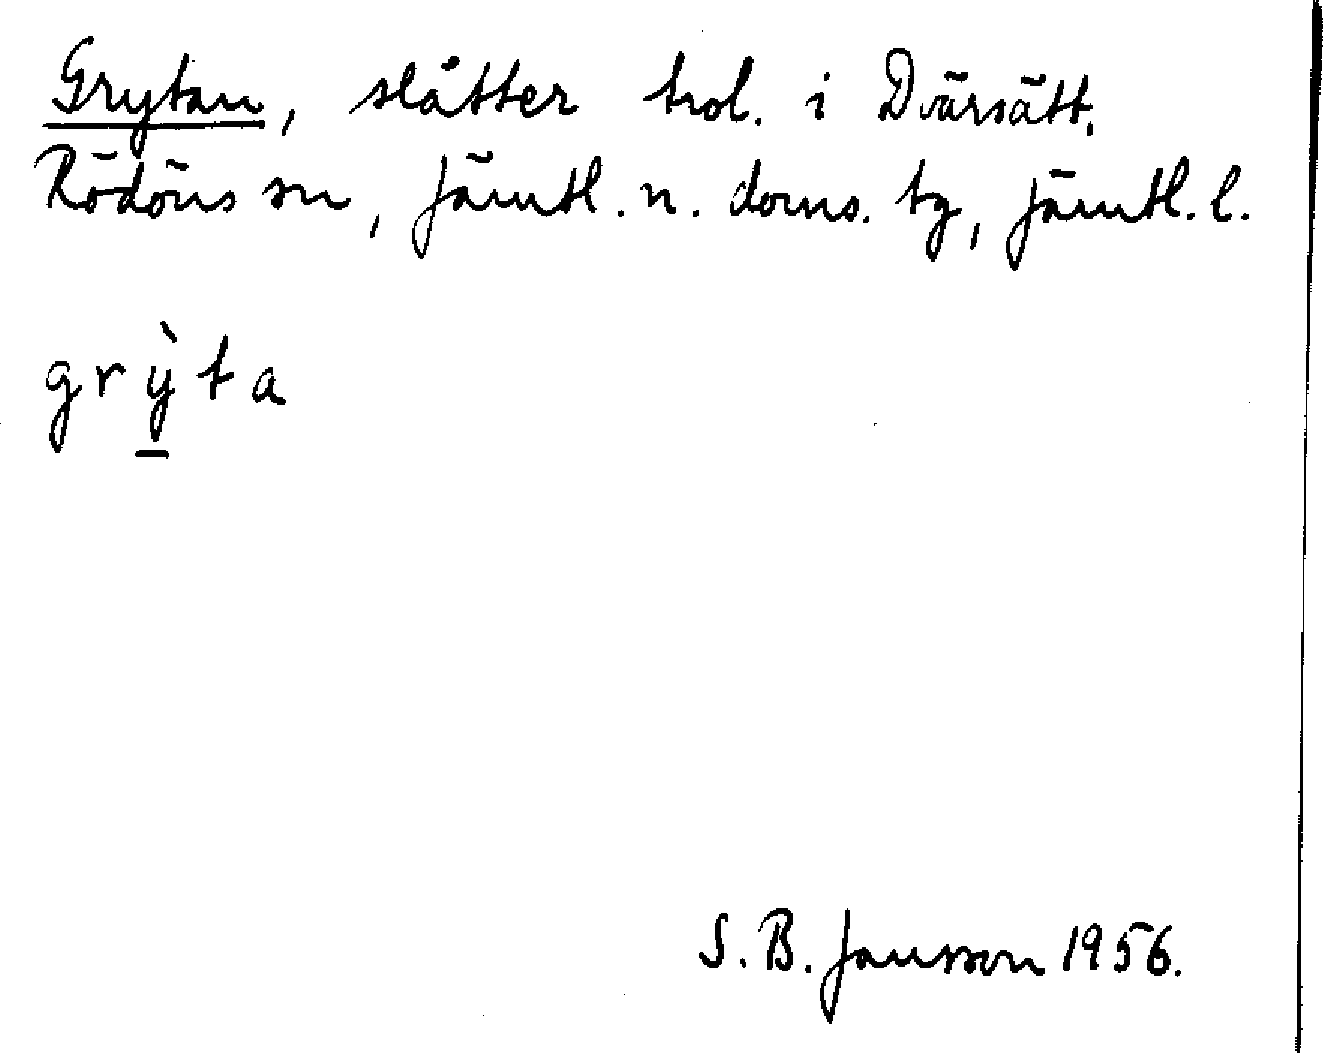 Grytan, slåtter trol. i Dvärsätt.
Rödöns sn, Jämtl. n. doms. tg, Jämtl. l.
grỳ̱ta
S. B. Jansson 1956.